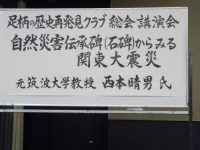 足柄の歴史再発見クラブ 総会 講演会
自然災害伝承碑(石碑)からみる
関東大震災
元筑波大学教授 西本晴男 氏